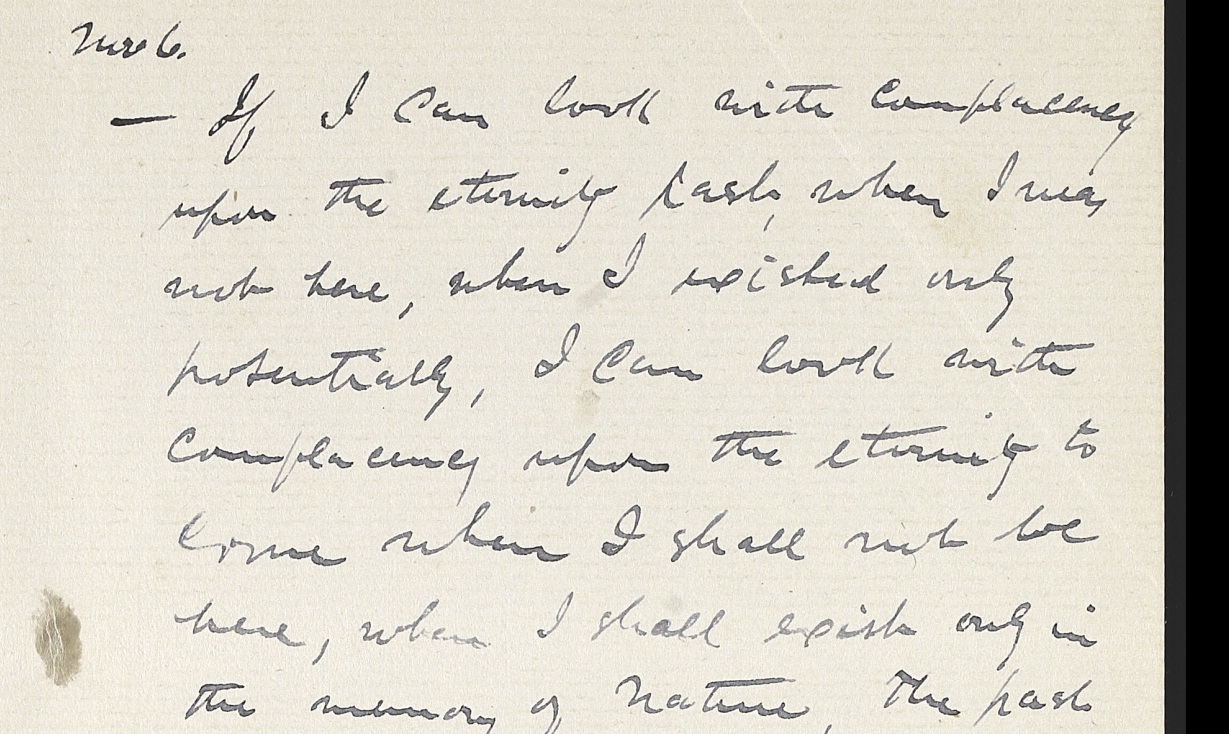 — If I can look with complacency
upon the eternity past, when I was
not here, when I existed only
potentially, I can look with
complacency upon the eternity to
come when I shall not be
here, when I shall exist only in
the memory of Nature. The past